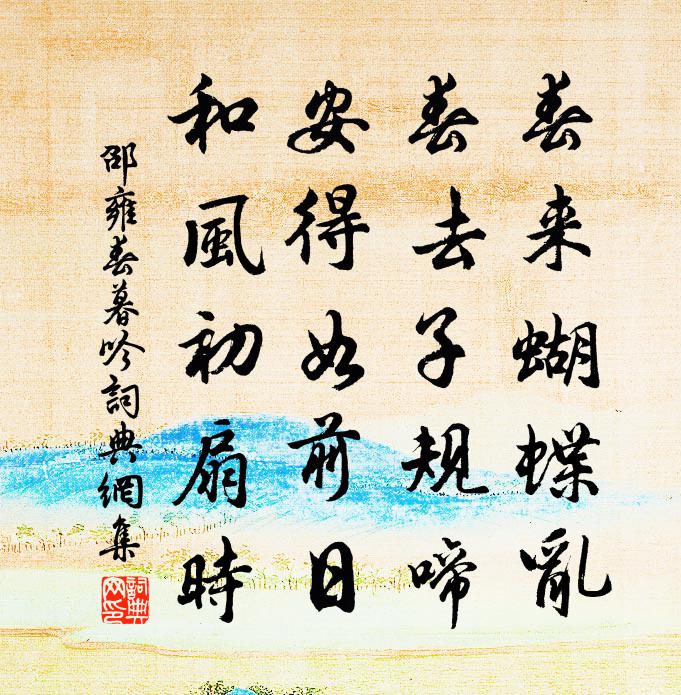 春来蝴蝶亂
春去子規啼
安得如前日
和風初扇時
邵雍春暮吟詞典網集
詞典網印